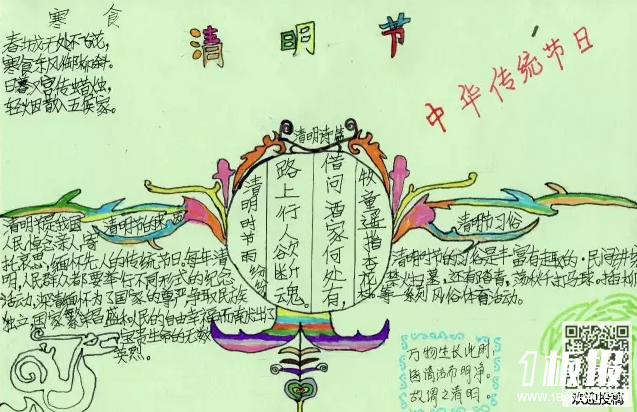 寒食
春城无处不飞花,
寒食东风御柳斜。
日暮汉宫传蜡烛,
轻烟散入五侯家。
清明节
中华传统节日
清明诗篇
清明时节雨纷纷
路上行人欲断魂。
借问酒家何处有,
牧童遥指杏花村。
清明节的
清明节是我国
人民悼念亲人,寄
托哀思,缅怀先人的传统节日,每年清
明,人民群众都要举行不同形式的纪念
活动,深情缅怀为了国家的尊严争取民族
独立国家繁荣昌盛和人民的自由幸福而献出了
宝贵生命的无数
英烈。
清明的习俗
清明时节的习俗是丰富有趣的,民间讲禁
火扫墓,还有踏青,荡秋千,打马球。插柳
等一系列风俗体育活动。
万物生长此时,
皆清洁而明净。
故谓之清明。
1板报
欢迎投稿